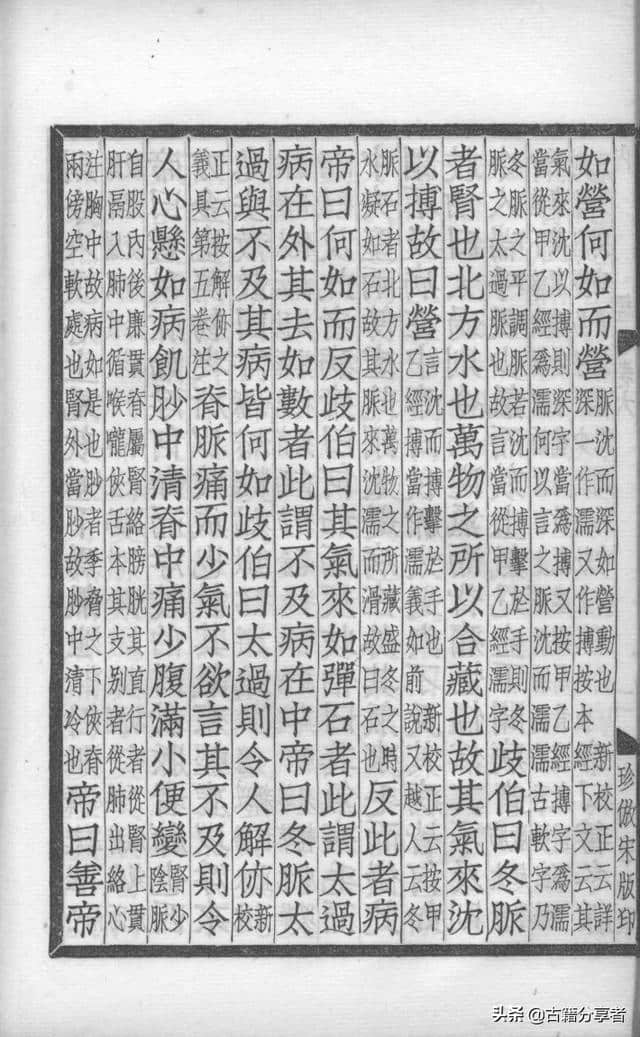 珍倣宋版印
如營何如而營脈沈而深如營動也 新校正云詳深一作濡又作搏按本經下文云其
氣來沈以搏則深字當爲搏又按甲乙經搏字爲濡當從甲乙經爲濡何以言之脈沈而濡濡古軟字乃
冬脈之平調脈若沈而搏擊於手則冬脈之太過脈也故言當從甲乙經濡字歧伯曰冬脈
者腎也北方水也萬物之所以合藏也故其氣來沈
以搏故曰營言沈而搏擊於手也 新校正云按甲乙經搏當作濡義如前說又越人云冬
脈石者北方水也萬物之所藏盛冬之時水凝如石故其脈來沈濡而滑故曰石也反此者病
帝曰何如而反歧伯曰其氣來如彈石者此謂太過
病在外其去如數者此謂不及病在中帝曰冬脈太
過與不及其病皆何如歧伯曰太過則令人解㑊新校
正云按解㑊之義具第五卷注脊脈痛而少氣不欲言其不及則令
人心懸如病飢䏚中清脊中痛少腹滿小便變腎少陰脈
自股內後廉貫脊屬腎絡膀胱其直行者從腎上貫肝鬲入肺中循喉嚨俠舌本其支别者從肺出絡心
注胸中故病如是也䏚者季脅之下俠脊兩傍空軟處也腎外當䏚故䏚中清冷也帝曰善帝
头条 @古籍分享者